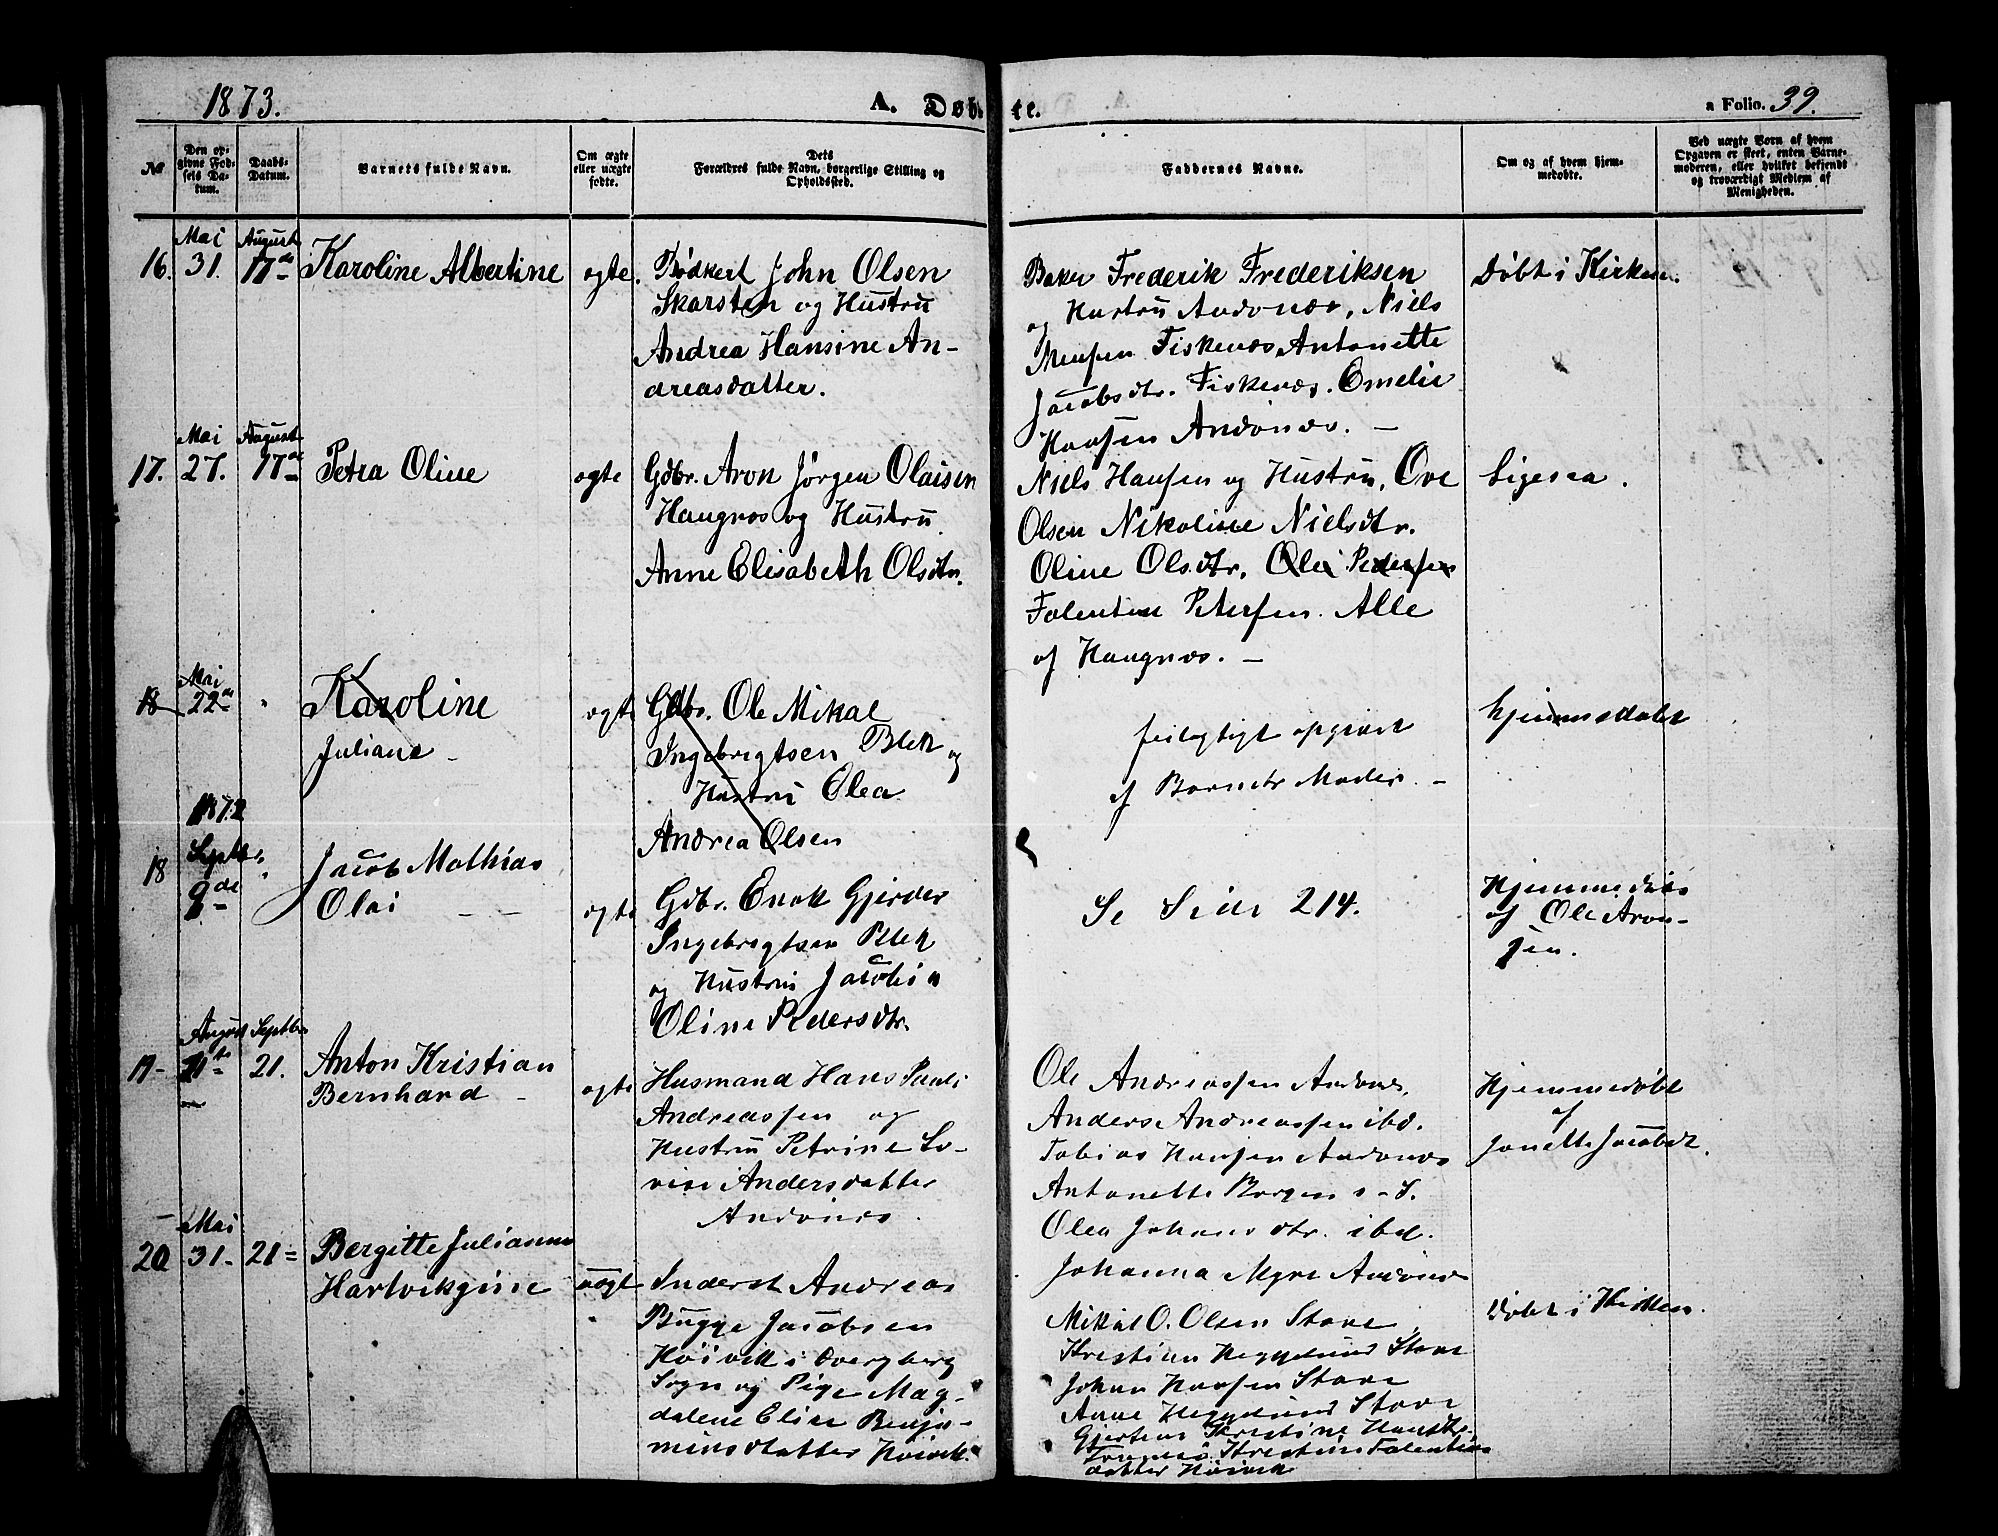 1873.
A. Døb-
te.
a Folio. 39.
№
Den op-
givne Fød-
sels Da-
tum.
Daabs-
Datum.
Barnets fulde Navn.
Om ægte
eller uægte
fødte.
Dets
Forældres fulde Navn, borgerlige Stilling og
Opholdssted.
Faddernes Navne.
Om og af hvem hjem-
medøbte.
Ved uægte Børn af hvem
Opgaven er skeet, enten Barne-
moderen, eller hvilket bekjendt
og troværdigt Medlem af
Menigheden.
Mai August
16. 31. 17de Karoline Albertine ægte. Bødkert John Olsen
Skarsten og Hustru
Andrea Hansine An-
dreasdatter.
Baker Frederik Frederiksen
og Hustru Andønæs, Niels
Fiskenæs Antonette
Jacobsdtr. Fiskenæs. Emelie
Hansen Andønæs. —
Døbt i Kirken.
Mai August
17. 27. 17de Petra Oline ægte Gdbr. Aron Jørgen Olaisen
Haugnæs og Hustru
Anne Elisabeth Olsdtr.
Niels Hansen og Hustru, Ove
Olsen Nikoline Nielsdtr.
Oline Olsdtr, Ole Pedersen
Falentin Petersen. Alle
af Haugnæs. —
Ligesaa.
Mai
18 22de Karoline
Juliane
ægte Gdbr. Ole Mikal
Ingebrigtsen Blek og
Hustru Olea
Andrea Olsen
feilagtigt opgivet
af Barnets Moder. —
hjemmedøbt
1872
Septbr.
18 9de Jacob Mathias
Olai — —
ægte Gdbr. Enok Gjerder
Ingebrigtsen Blek
og Hustru Jacobin
Oline Pedersdtr.
Se Side 214.
Hjemmedøbt
af Ole Aron-
sen.
August Septbr
19 21. Anton Kristian
Bernhard —
ægte Husmand Hans Pauli
Andreassen og
Hustru Petrine Lo-
vise Andersdatter
Andønæs.
Ole Andreassen Andønæs,
Anders Andreassen ibd.
Tobias Hansen Andønæs
Antonette
Olea Johansdtr. ibd.
Johanna Myre Andønæs
Hjemmedøbt
af
Janette Jacobsdt.
Mai
20 31. 21 Bergitte Julianne
Hartvikgine
uægt Inderst Andreas
Bugge Jacobsen
Høivik i Dverberg
Sogn og Pige Mag-
dalene Elise Benja-
minsdatter Høivik.
Mikal O. Olsen Stave
Kristian Heggelund Stave
Johan Hansen Stave
Anne Heggelund Stave
Kristine
Kristine Falentin-
datter Høivik
Døbt i Kirken.